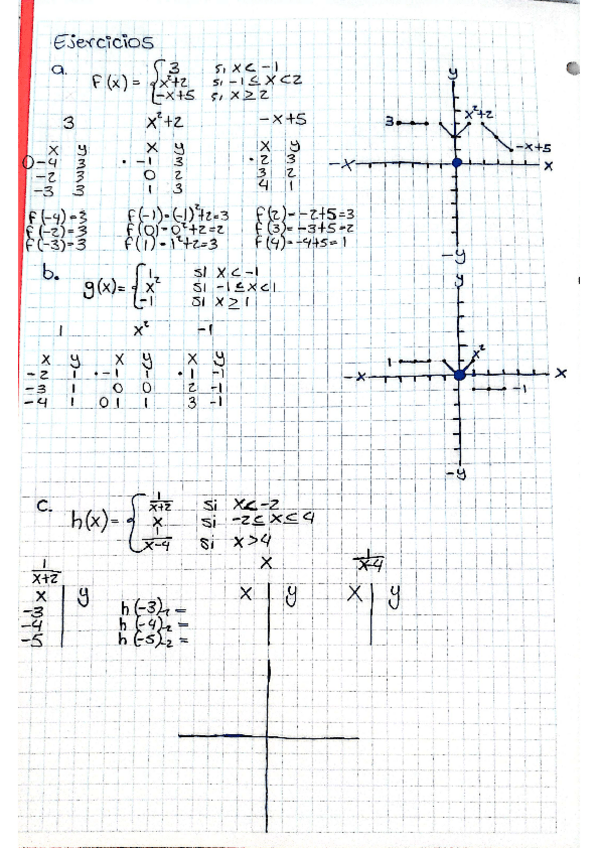 Ejercicios
a. f(x) = { 3 si x < -1
x²+2 si -1 ≤ x < 2
-x+5 si x ≥ 2
3 x²+2 -x+5
x y x y x y
0-4 3 · -1 3 · 2 3
-2 3 0 2 3 2
-3 3 1 3 4 1
f(-4)=3 f(-1)=(-1)²+2=3 f(2)=-2+5=3
f(-2)=3 f(0)=0²+2=2 f(3)=-3+5=2
f(-3)=3 f(1)=1²+2=3 f(4)=-4+5=1
y
3 x²+2
-x+5
-x x
-y
b. g(x) = { 1 si x < -1
x² si -1 ≤ x < 1
-1 si x ≥ 1
1 x² -1
x y x y x y
-2 1 · -1 1 · 1 -1
-3 1 0 0 2 -1
-4 1 0 1 1 3 -1
y
1 x²
-x x
-1
-y
c. h(x) = { 1/x+2 si x < -2
x si -2 ≤ x ≤ 4
1/x-4 si x > 4
1/x+2 x 1/x-4
x y x y x y
-3 h(-3)-2 =
-4 h(-4)-2 =
-5 h(-5)-2 =